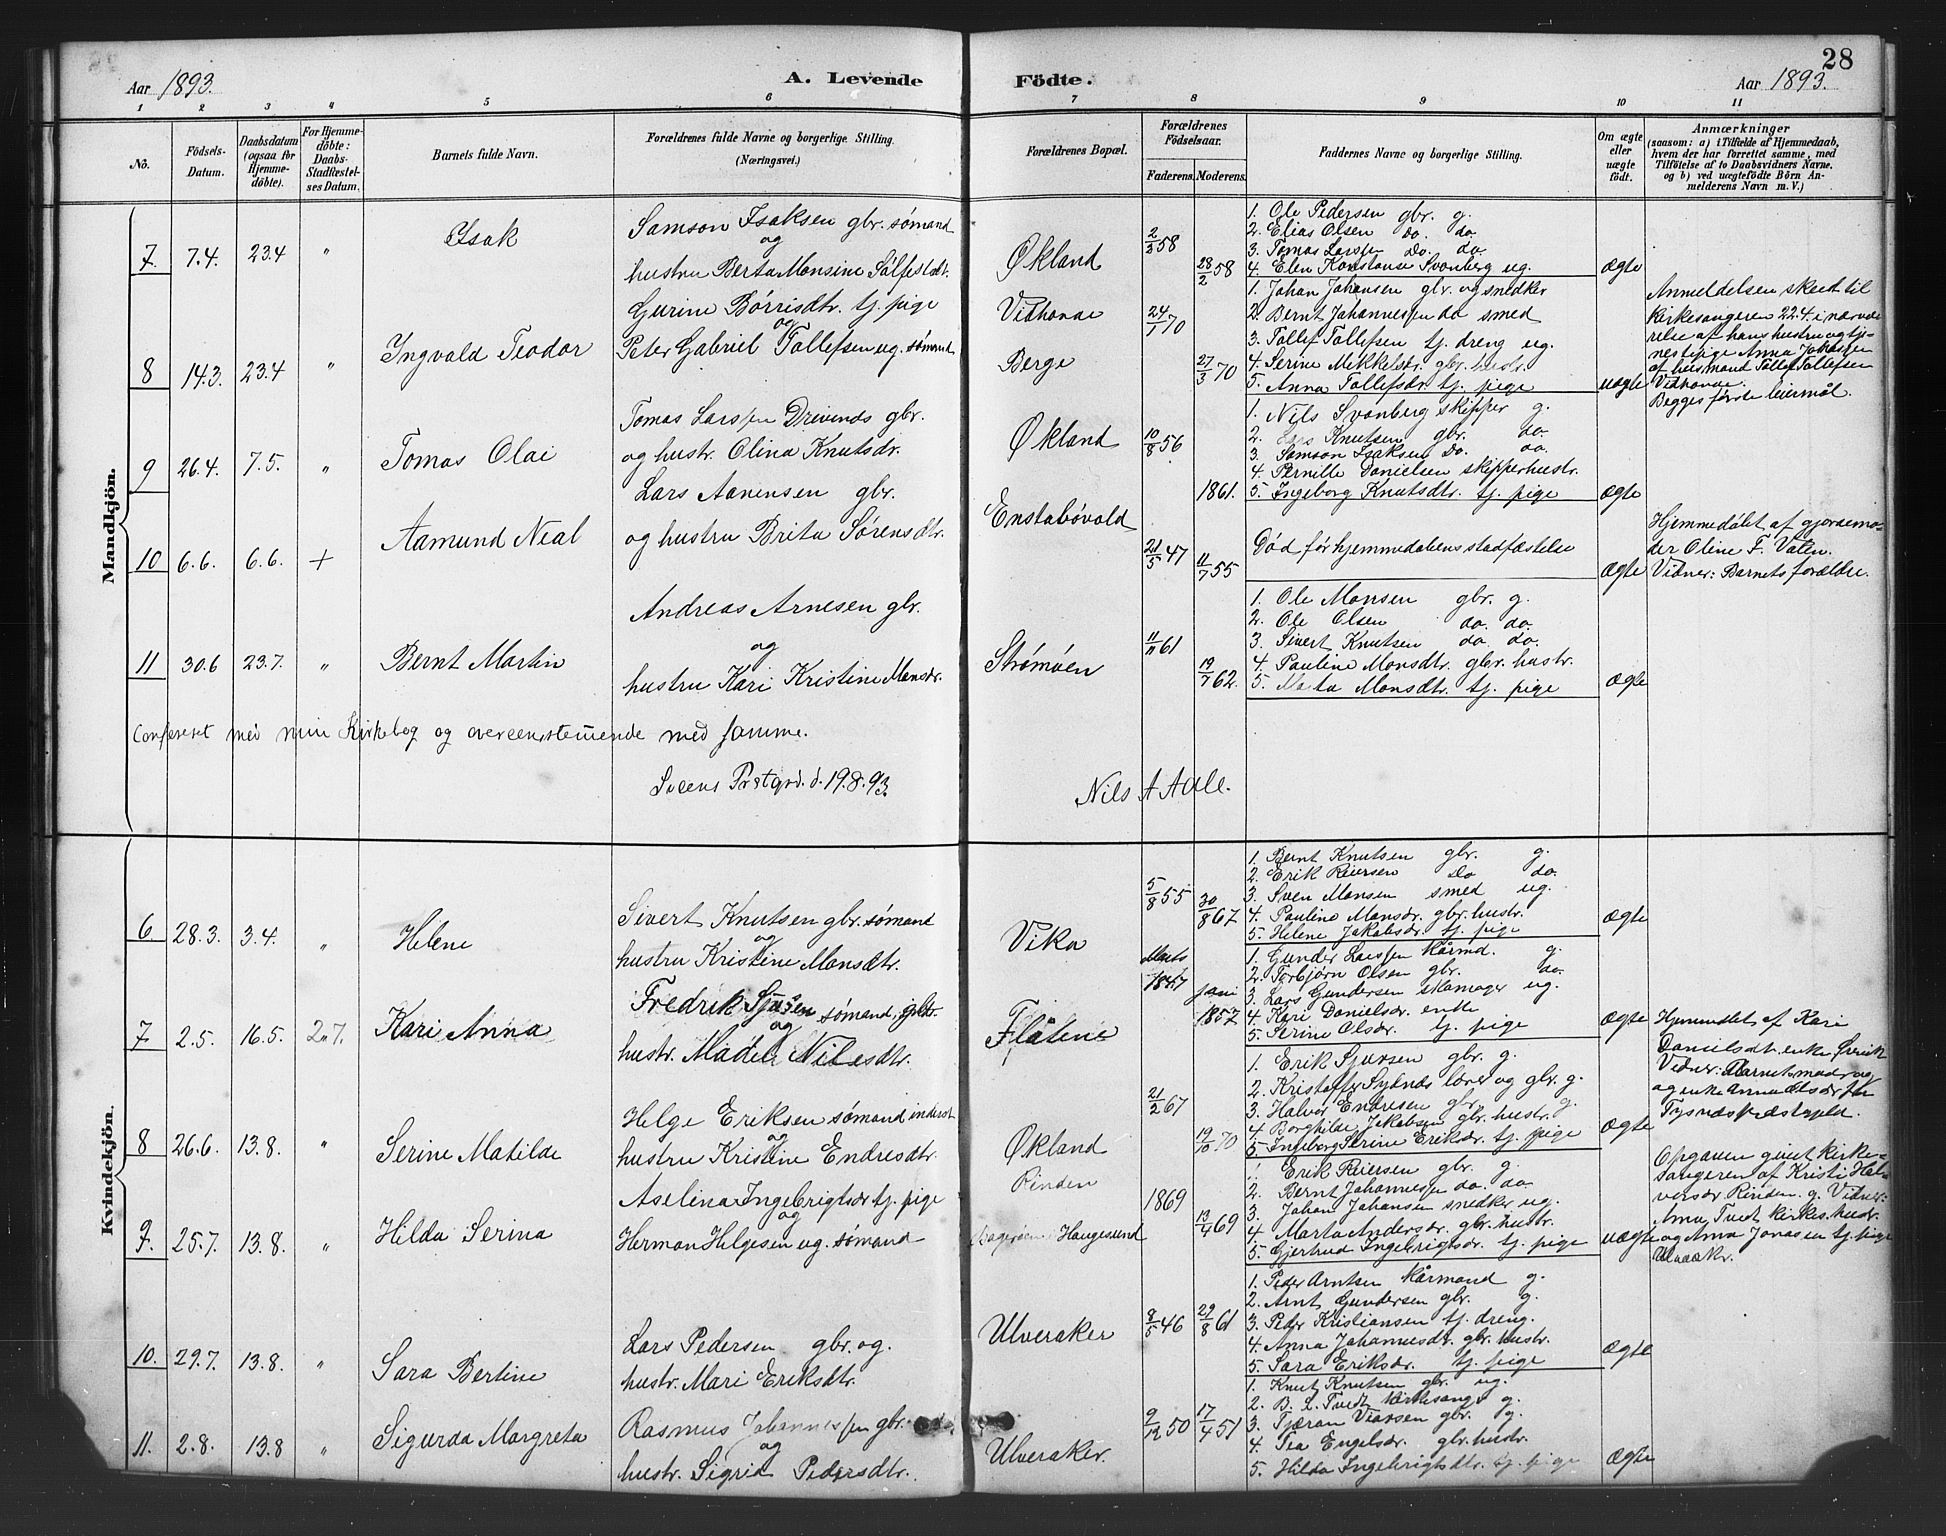 28
Aar 1893. A. Levende Födte. Aar 1893.
1 2 3 " 5 6 7 8 9 10 11
No. Födsels-Datum. Daabsdatum (ogsaa for Hjemme-döbte). For Hjemme-döbte: Daabs-Stadfæstel-ses Datum. Barnets fulde Navn. Forældrenes fulde Navne og borgerlige Stilling. (Næringsvei.) Forældrenes Bopæl. Forældrenes Födselsaar. Faderens. Moderens. Faddernes Navne og borgerlige Stilling. Om ægte eller uægte födt. Anmærkninger (saasom: a) i Tilfælde af Hjemmedaab, hvem der har forrettet samme, med Tilföielse af to Daabsvidners Navne. og b) ved uægtefödte Börn An-melderens Navn m. V.)
Mandkjön.
7. 7.4. 23.4 " Isak
Samson Isaksen gbr. sømand
og
hustru Berta Monsine Sølfestdtr.
Økland 2/3 58 28/2 58
1. Ole Pedersen gbr. g.
2. Elias Olsen do. do.
3. Tomas Larssen Do. do.
4. Elen Konstanse Svanberg ug.
ægte
8 14.3. 23.4 " Ingvald Teodor
Gurine Børrisdtr. tj. pige
og
Peter Gabriel Tollefsen ug. sømand
Vidhovde 24/1 70
Berge 27/3 70
1. Johan Johansen gbr. og snedker
2. Bernt Johannessen do smed
3. Tollef Tollefsen tj. dreng ug.
4. Serine Mikkelsdtr. gbr. hustr.
5. Anna Tollefsdr. tj. pige
uægte
Anmeldelsen skeet til
kirkesangeren 22.4. i nærvæ
relse af hans hustru og tje-
nestepige Anna Johansen
af husmand Tollef Tollefsen
Vidhovde.
Begges første leiermål.
9 26.4. 7.5. " Tomas Olai
Tomas Larssen Drivends gbr.
og hustr. Olina Knutsdr.
Økland 10/8 56 1861.
1. Nils Svanberg skipper g.
2. Lars Knutsen gbr. do.
3. Samson Isaksen Do. do.
4. Pernille Danielsen skipperhustr.
5. Ingeborg Knutsdtr. tj. pige
ægte
10 6.6. 6.6. + Aamund Neal
Lars Aanensen gbr.
og hustru Brita Sørensdtr.
Enstabøvold 21/5 47 11/7 55
Død før hjemmedabens stadfæstelse
ægte
Hjemmedøbt af gjordemo-
der Oline F. Valen.
Vidner: Barnets forældre.
11 30.6 23.7. " Bernt Martin
Andreas Arnesen gbr.
og
hustru Kari Kristine Monsdr.
Strømøen 11/11 61 19/7 62.
1. Ole Monsen gbr. g.
2. Ole Olsen do. do.
3. Sivert Knutsen do. do.
4. Pauline Monsdtr. gbr. hustr.
5. Marta Monsdtr. tj. pige
ægte
Confereret med min Kirkebog og overeensstemmende med samme.
Sveens Prstgrd. d. 19.8.93. Nils A Aale.
Kvindekjön.
6 28.3. 3.4. " Helene
Sivert Knutsen gbr. sømand
og
hustru Kristine Monsdtr.
Vika 5/8 55 30/8 67
1. Bernt Knutsen gbr. g.
2. Erik Reiersen Do do.
3. Sven Monsen smed ug.
4. Pauline Monsdr. gbr. hustr.
5. Helene Jakobsdr. tj. pige
ægte
7 2.5. 16.5. 2.7. Kari Anna
Fredrik Sjursen sømand,
og
hustr. Madel Nilsdtr.
Flåtene Marts 1847 Juni 1857
1. Gunder Larssen Kårmd. g.
2. Torbjørn Olsen gbr. do.
3. Lars Gundersen skomager ug.
4. Kari Danielsdr. enke
5. Serine Olsdr. tj. pige
ægte
Hjemmedøbt af Kari
Danielsdtr. enke
Vidner: Barnets moder og
og enke Anna Olsdr
8 26.6. 13.8. " Serine Matilde
Helge Eriksen sømand inderst
og
hustru Kristine Endresdtr.
Økland 21/2 67 19/10 70
1. Erik Sjursen gbr. g.
2. Kristoffer Sydnes lærer og gbr. g.
3. Halvor Endresen gbr. g.
4. Borghilde Jakobsen gbr. hustr.
5. Ingeborg Serine Eriksdr. tj. pige
ægte
9. 25.7. 13.8. " Hilda Serina
Aselina Ingebrigtsdr. tj. pige
og
Herman Helgesen ug. sømand
Rinden 1869
Haugesund 13/4 69
1. Erik Reiersen gbr. g.
2. Bernt Johannessen do. do.
3. Johan Johansen snedker ug.
4. Marta Andersdr. gbr. hustr.
5. Gjertrud Ingebrigtsdr. tj. pige
uægte
Opgaven givet kirke-
sangeren af Kristi Hal-
versdr Rinden. g. Vidner:
Anna Tvedt kirkes. hustr.
og Anna Jonasen tj. pige
Ulvaakr.
10. 29.7. 13.8. " Sara Bertine
Lars Pedersen gbr. og.
hustr. Mari Eriksdtr.
Ulveraker 8/5 46 29/8 61
1. Peder Arntsen Kårmand g.
2. Arnt Gundersen gbr. g.
3. Peder Kristiansen tj. dreng.
4. Anna Johannesdr. gbr. hustr.
5. Sara Eriksdr. tj. pige
ægte
11. 2.8. 13.8 " Sigurda Margreta
Rasmus Johannessen gbr.
og
hustr. Sigrid Pedersdtr.
Ulveraker. 9/12 50 17/4 51
1. Knut Knutsen gbr. ug.
2. B. L. Tvedt kirkesang. g.
3. Tjæran Viarsen gbr. g.
4. Tea Engelsdr. gbr. hustr.
5. Hilda Ingebrigtsdtr. tj. pige
ægte